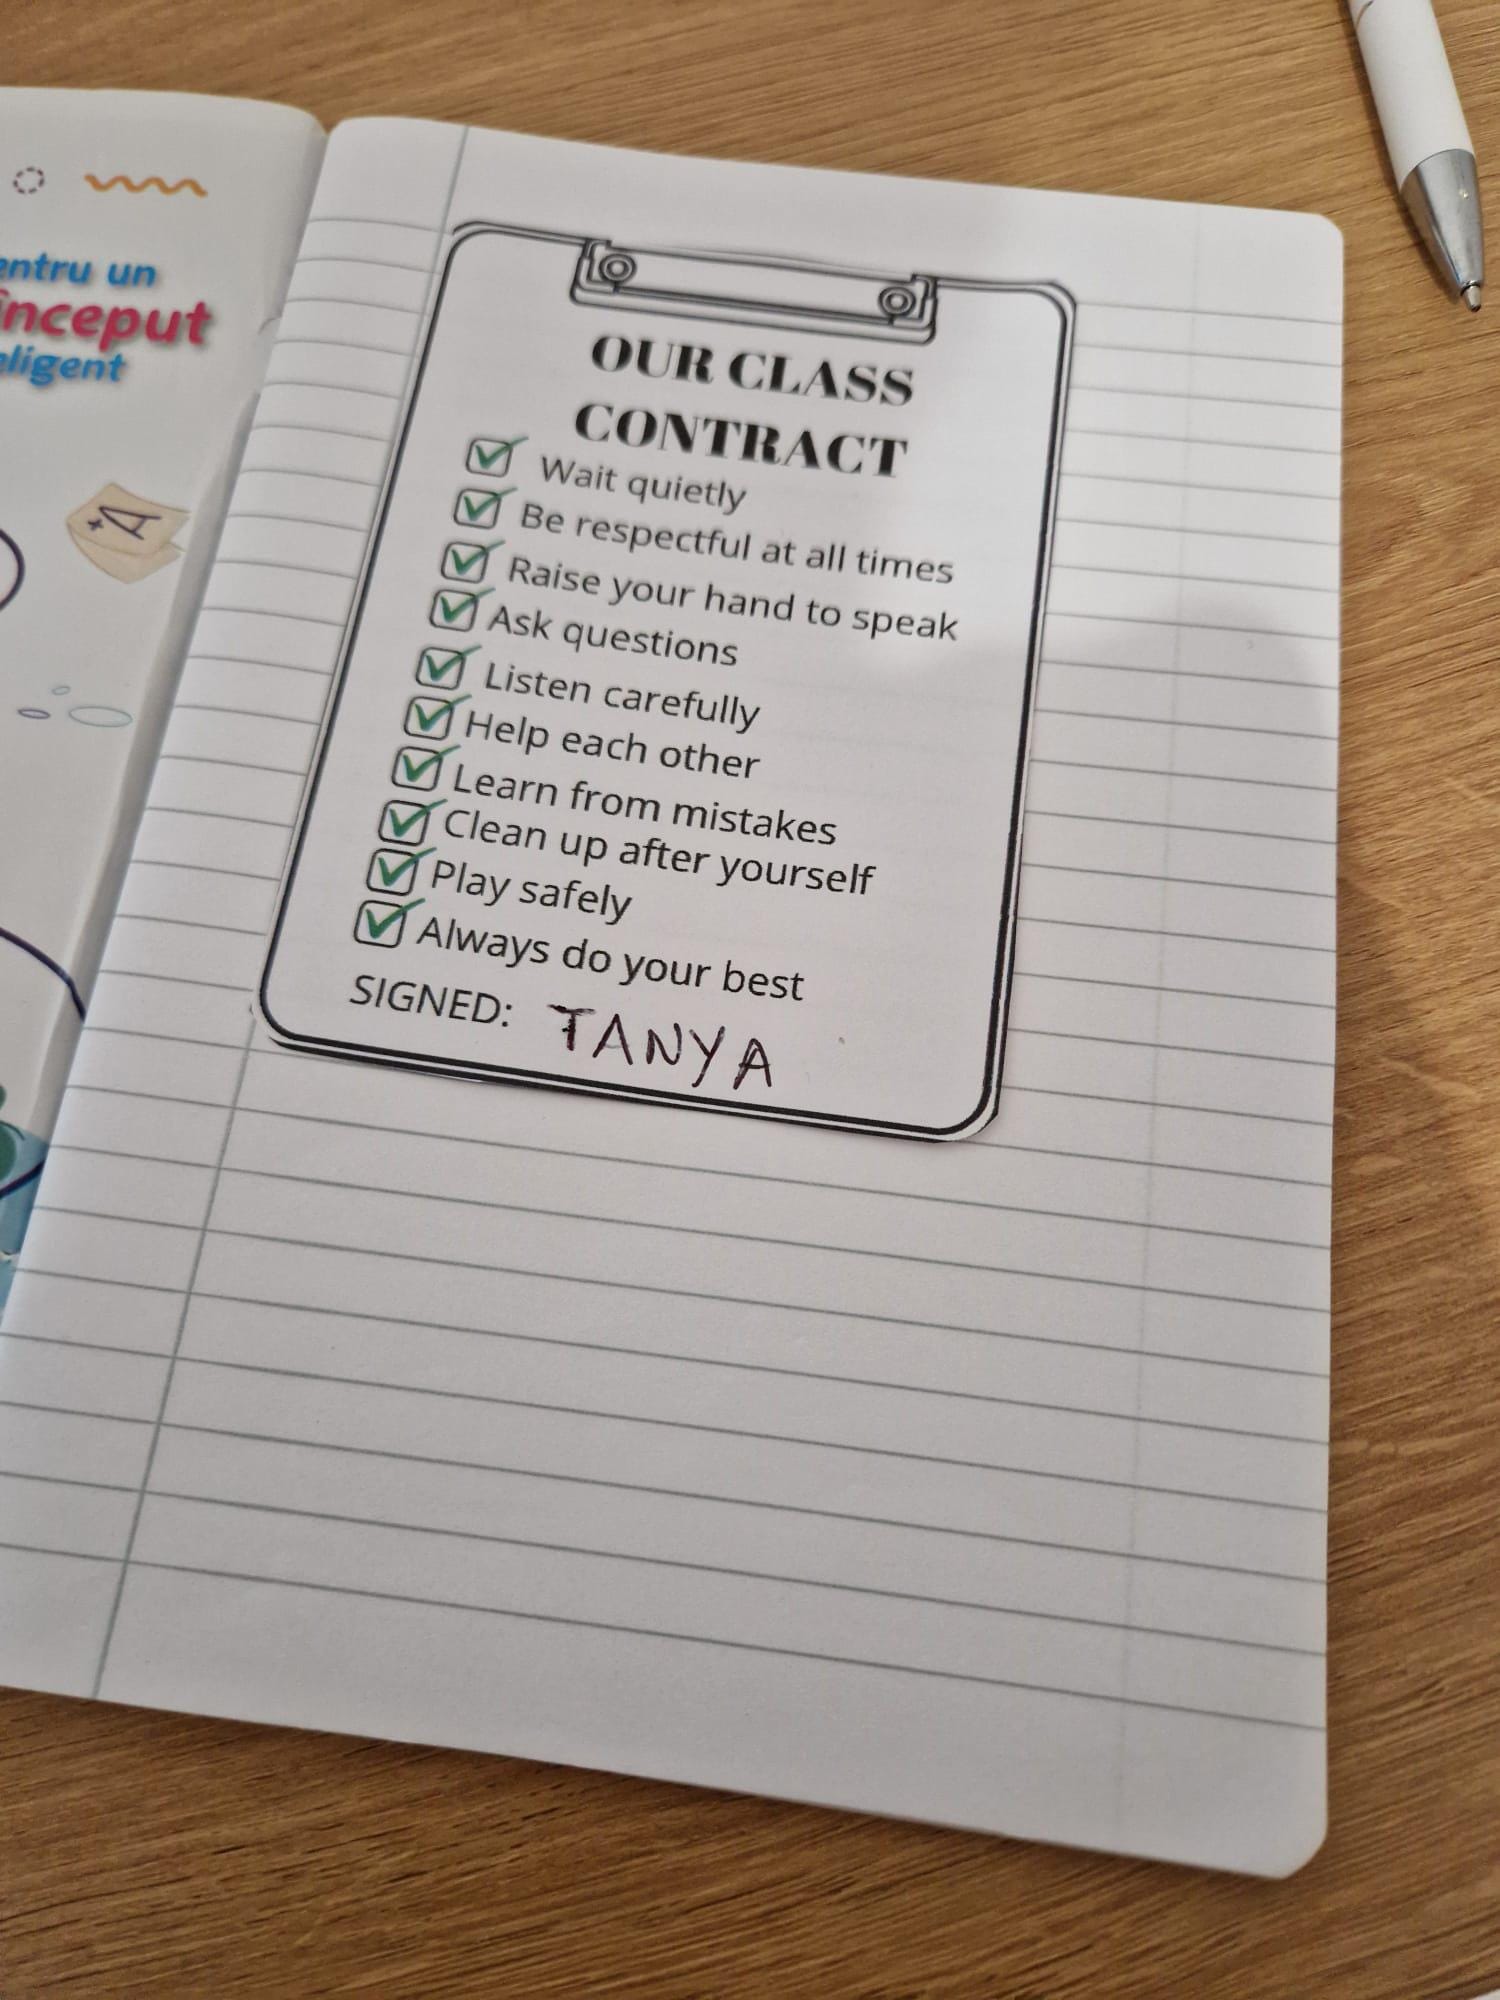 entru un
început
eligent
A+
OUR CLASS
CONTRACT
Wait quietly
Be respectful at all times
Raise your hand to speak
Ask questions
Listen carefully
Help each other
Learn from mistakes
Clean up after yourself
Play safely
Always do your best
SIGNED: TANYA